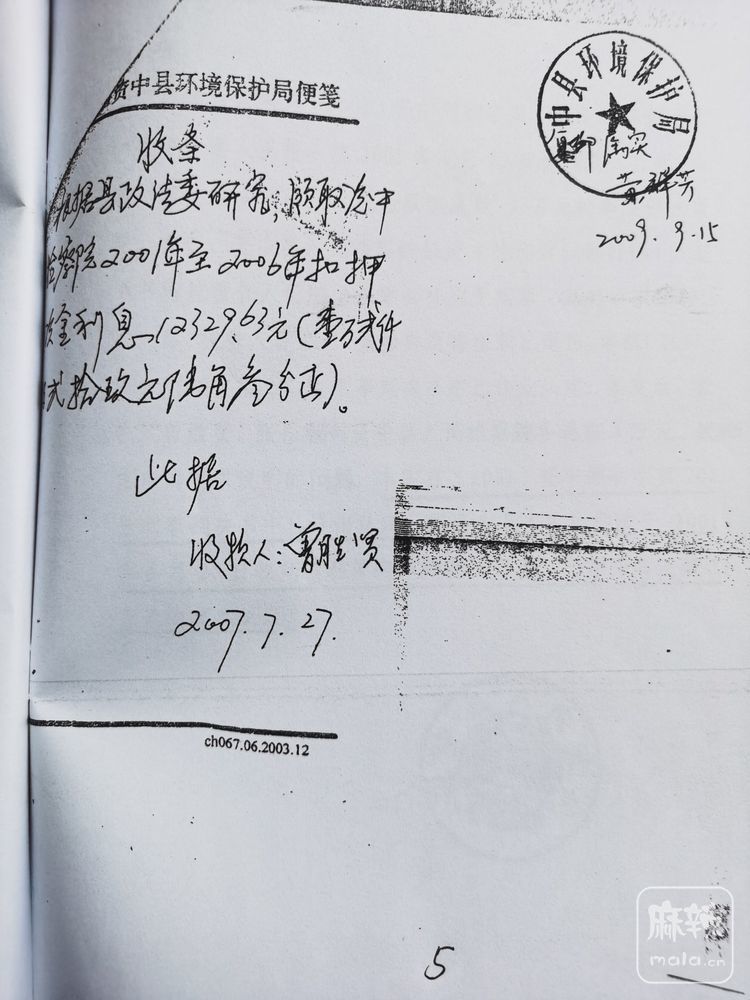 资中县环境保护局便笺
收条
根据县政法委研究，领取资中
检察院2001年至2006年扣押
资金利息12329.63元（壹万贰仟
贰拾玖元陆角叁分正）。
此据
收款人：曾胜贤
2007.7.27.
ch067.06.2003.12
中县环境保护局
复印属实
黄群芳
2009.9.15
5
麻辣
mala.cn